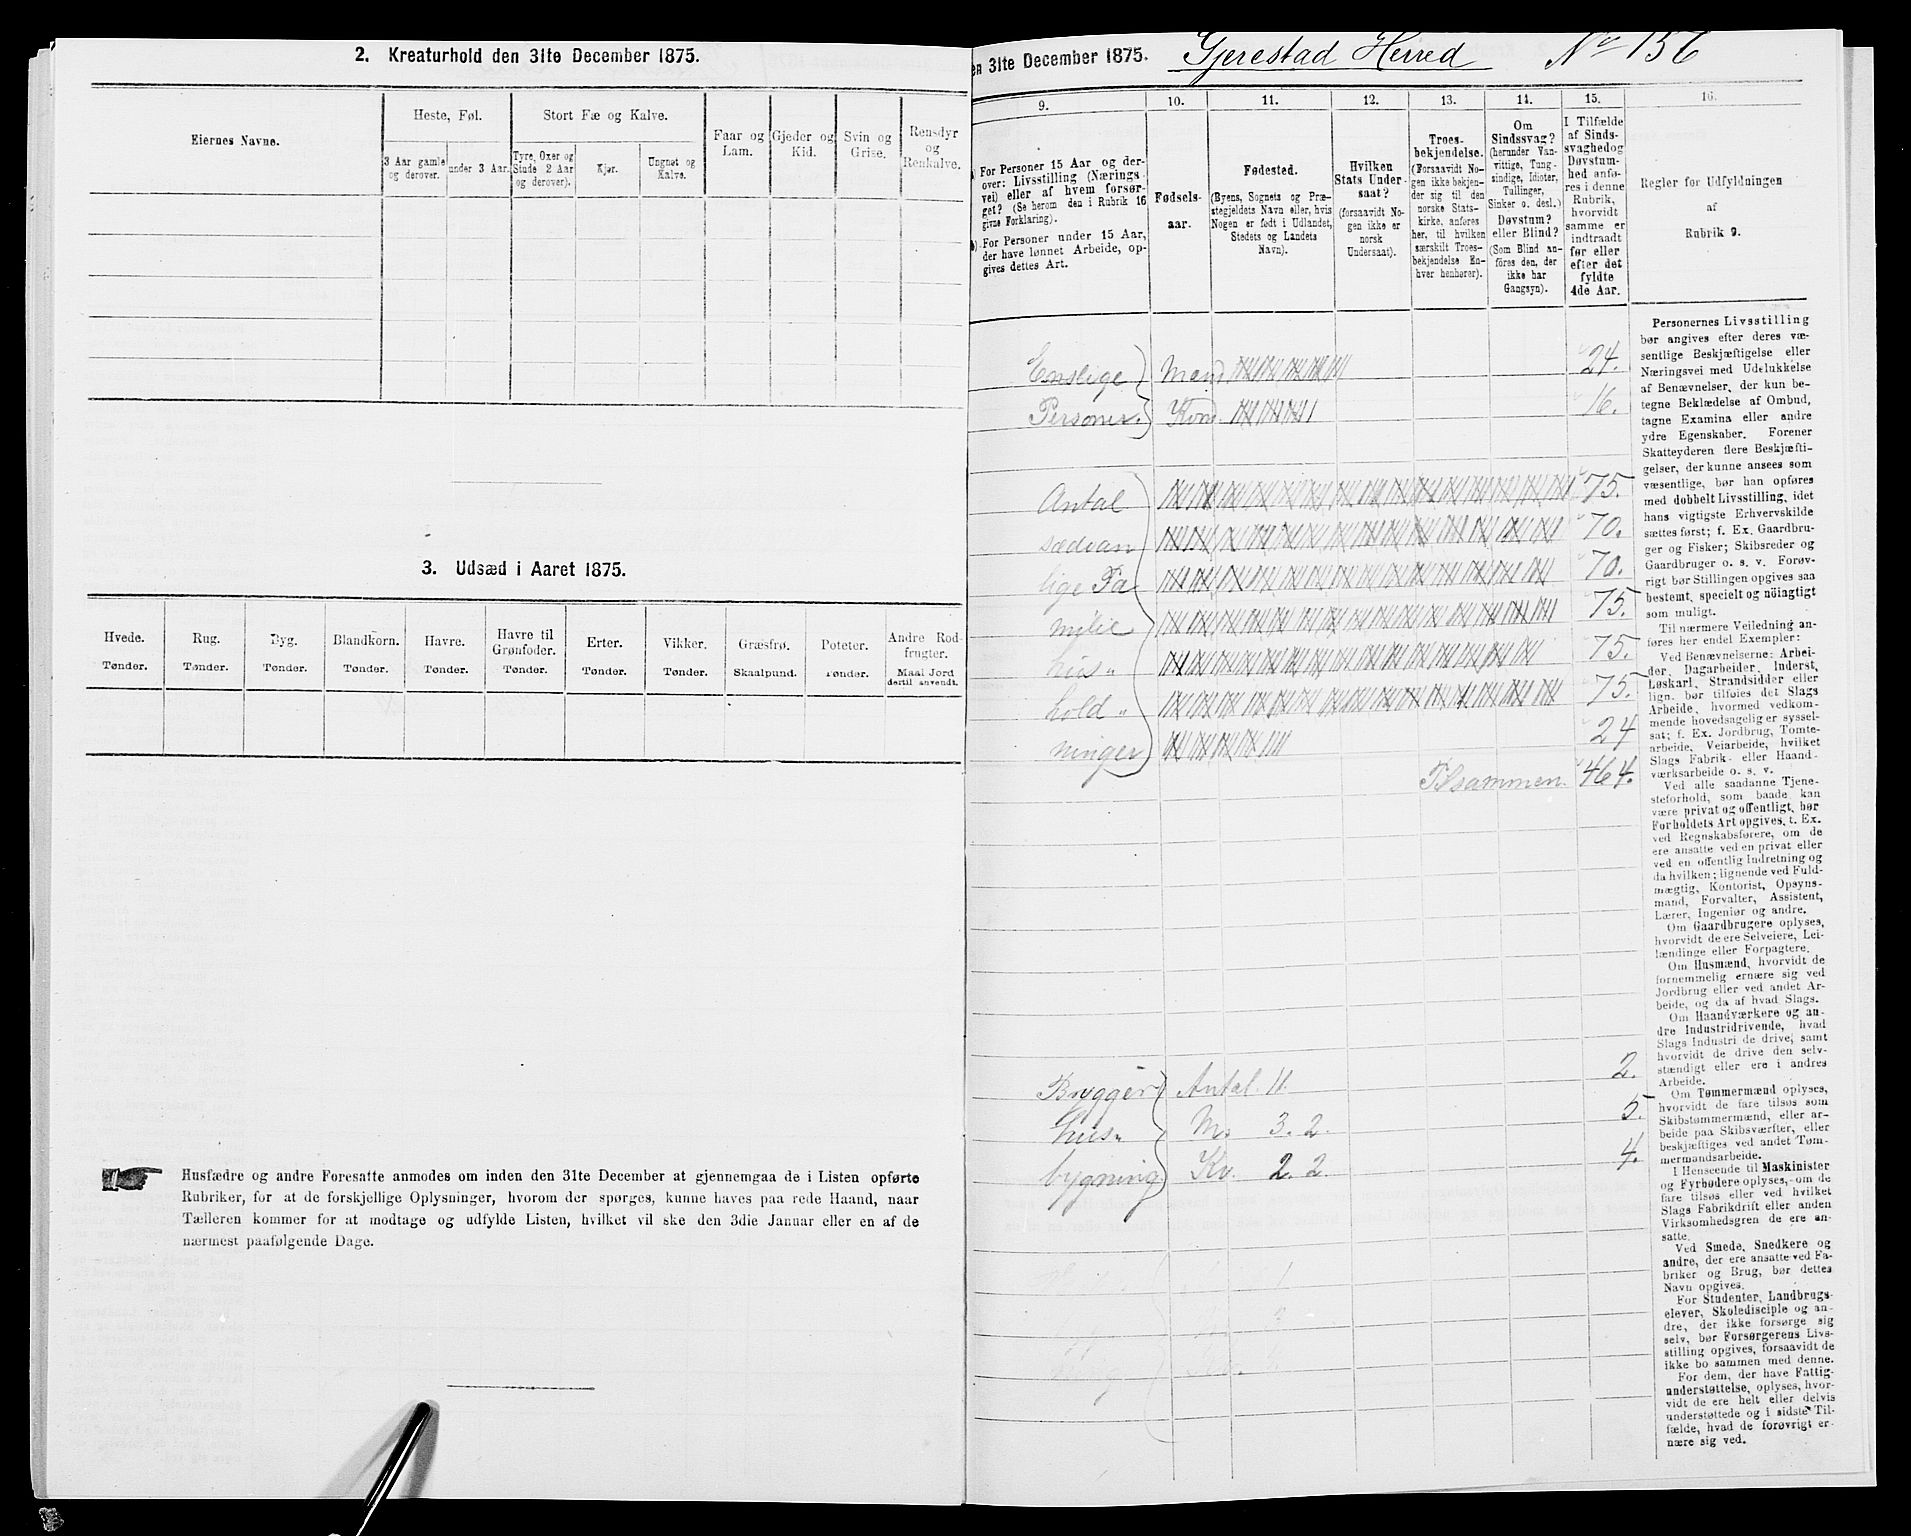 2. Kreaturhold den 31te December 1875.
Eiernes Navne.
Heste, Føl.
3 Aar gamle og derover.
under 3 Aar.
Stort Fæ og Kalve.
Tyre, Oxer og Stude 2 Aar og derover).
Kjør.
Ungnøt og Kalve.
Faar og Lam.
Gjeder og Kid.
Svin og Grise.
Rensdyr og Renkalve.
3. Udsæd i Aaret 1875.
Hvede. Tønder.
Rug. Tønder.
Byg. Tønder.
Blandkorn. Tønder.
Havre. Tønder.
Havre til Grønfoder. Tønder.
Erter. Tønder.
Vikker. Tønder.
Græsfrø. Skaalpund.
Poteter. Tønder.
Andre Rodfrugter. Maal Jord dertil anvendt.
Husfædre og andre Foresatte anmodes om inden den 31te December at gjennemgaa de i Listen opførte
Rubriker, for at de forskjellige Oplysninger, hvorom der spørges, kunne haves paa rede Haand, naar
Tælleren kommer for at modtage og udfylde Listen, hvilket vil ske den 3die Januar eller en af de
nærmest paafølgende Dage.
en 31te December 1875. Gjerestad Herred No 156
9. 10. 11. 12. 13. 14. 15. 16.
For Personer 15 Aar og der-
over: Livsstilling (Nærings-
vei) eller af hvem forsør-
get? (Se herom den i Rubrik 16
givne Forklaring).
For Personer under 15 Aar,
der have lønnet Arbeide, op-
gives dettes Art.
Fødsels-
aar.
Fødested.
(Byens, Sognets og Præ-
stegjeldets Navn eller, hvis
Nogen er født i Udlandet,
Stedets og Landets
Navn).
Hvilken
Stats Under-
saat?
(forsaavidt No-
gen ikke er
norsk
Undersaat).
Troes-
bekjendelse.
(Forsaavidt No-
gen ikke bekjen-
der sig til den
norske Stats-
kirke, anføres
her, til hvilken
særskilt Troes-
bekjendelse En-
hver henhører).
Om
Sindssvag?
(herunder Van-
vittige, Tung-
sindige, Idioter,
Tullinger,
Sinker o. desl.)
Døvstum?
eller Blind?
(Som Blind an-
føres den, der
ikke har
Gangsyn).
I Tilfælde
af Sinds-
svaghed og
Døvstum-
hed anfø-
res i denne
Rubrik,
hvorvidt
samme er
indtraadt
før eller
efter det
fyldte
4de Aar.
Regler for Udfyldningen
af
Rubrik 9.
Enslige Mænd 24.
Personer. Kvnd. 16.
Antal 75.
sædvan 70.
lige Fa 70.
milie 75.
hus„ 75.
hold „ 75.
ninger 24
Tilsammen. 464.
Brygger Antal. 11. 2.
hus„ M. 3. 2. 5.
bygning Kv. 2. 2. 4.
Personernes Livsstilling
bør angives efter deres væ-
sentlige Beskjæftigelse eller
Næringsvei med Udelukkelse
af Benævnelser, der kun be-
tegne Beklædelse af Ombud,
tagne Examina eller andre
ydre Egenskaber. Forener
Skatteyderen flere Beskjæfti-
gelser, der kunne ansees som
væsentlige, bør han opføres
med dobbelt Livsstilling, idet
hans vigtigste Erhvervskilde
sættes først; f. Ex. Gaardbru-
ger og Fisker; Skibsreder og
Gaardbruger o. s. v. Forøv-
rigt bør Stillingen opgives saa
bestemt, specielt og nöiagtigt
som muligt.
Til nærmere Veiledning an-
føres her endel Exempler:
Ved Benævnelserne: Arbei-
der, Dagarbeider, Inderst,
Løskarl, Strandsidder eller
lign. bør tilføies det Slags
Arbeide, hvormed vedkom-
mende hovedsagelig er syssel-
sat; f. Ex. Jordbrug, Tomte-
arbeide, Veiarbeide, hvilket
Slags Fabrik- eller Haand-
værksarbeide o. s. v.
Ved alle saadanne Tjene-
steforhold, som baade kan
være privat og offentligt, bør
Forholdets Art opgives, t. Ex.
ved Regnskabsførere, om de
ere ansatte ved en privat eller
ved en offentlig Indretning og
da hvilken; lignende ved Fuld-
mægtig, Kontorist, Opsyns-
mand, Forvalter, Assistent,
Lærer, Ingeniør og andre.
Om Gaardbrugere oplyses,
hvorvidt de ere Selveiere, Lei-
lændinge eller Forpagtere.
Om Husmænd, hvorvidt de
fornemmelig ernære sig ved
Jordbrug eller ved andet Ar-
beide, og da af hvad Slags.
Om Haandværkere og an-
dre Industridrivende, hvad
Slags Industri de drive, samt
hvorvidt de drive den selv-
stændigt eller ere i andres
Arbeide.
Om Tømmermænd oplyses,
hvorvidt de fare tilsøs som
Skibstømmermænd, eller ar-
beide paa Skibsværfter, eller
beskjæftiges ved andet Tøm-
mermandsarbeide.
I Henseende til Maskinister
og Fyrbødere oplyses, om de
fare tilsøs eller ved hvilket
Slags Fabrikdrift eller anden
Virksomhedsgren de ere an-
satte.
Ved Smede, Snedkere og
andre, der ere ansatte ved Fa-
briker og Brug, bør dettes
Navn opgives.
For Studenter, Landbrugs-
elever, Skoledisciple og an-
dre, der ikke forsørge sig
selv, bør Forsørgerens Livs-
stilling opgives, forsaavidt de
ikke bo sammen med denne.
For dem, der have Fattig-
understøttelse, oplyses, hvor-
vidt de ere helt eller delvis
understøttede og i sidste Til-
fælde, hvad de forøvrigt er-
nære sig ved.